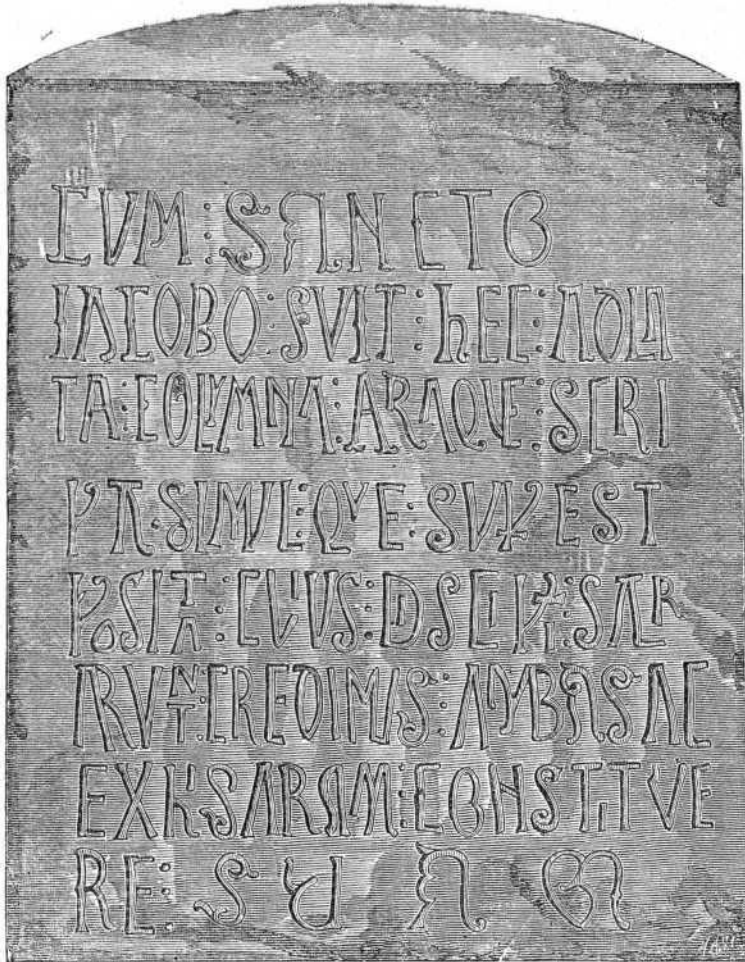 CVM : SANCTO
IACOBO : FVIT : hEC : ADLA
TA : COLVMNA : ARAQVE : SCRI
PTA · SIMVL : QVE : SVP EST
POSITA : CVIVS : DISCIPLI : SACR
ARVNT : CREDIMVS : AMBAS AC
EX HIS ARAM : CONSTITVE
RE : SVAM